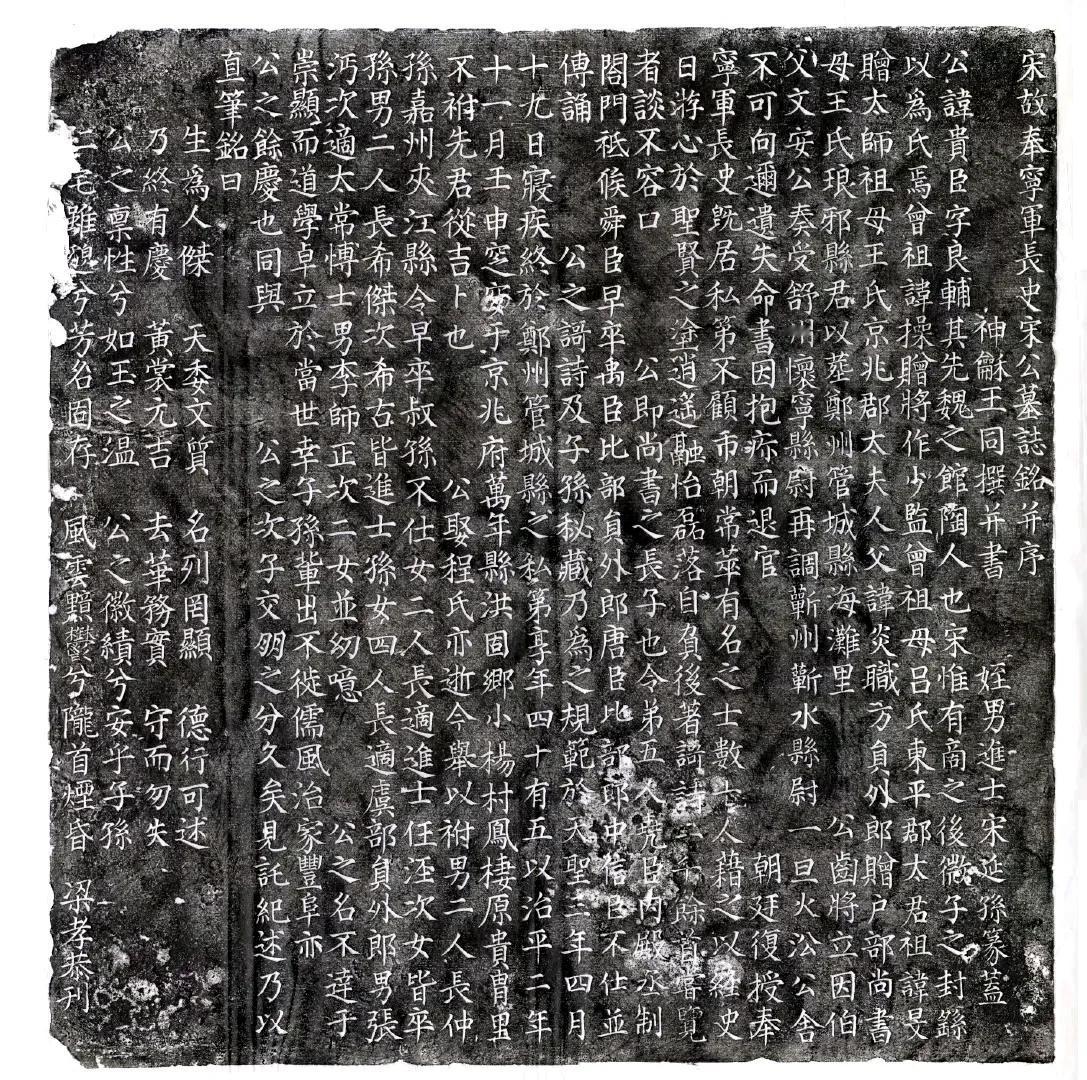 宋故奉寧軍長史宋公墓誌銘并序
神龢王同撰并書 姪男進士宋延孫篆蓋
公諱貴臣字良輔其先魏之館陶人也宋惟有商之後微子之封繇
以爲氏焉曾祖諱操贈將作少監曾祖母呂氏東平郡太君祖諱旻
贈太師祖母王氏京兆郡太夫人父諱炎職方員外郎贈户部尚書
母王氏琅邪縣君以葬鄭州管城縣海灘里 公齒將立因伯
父文安公奏受舒州懷寧縣尉再調蘄州蘄水縣尉一旦火公舍
不可向邇遺失命書因抱疢而退官 朝廷復授奉
寧軍長史既居私第不顧市朝常萃有名之士數七大藉之以經史
日游心於聖賢之塗逍遥融怡磊落自負後著謌詩三千餘首嘗覽
者談不容口 公即尚書之長子也令弟五人堯臣内殿丞制
閤門祗候舜臣早卒禹臣比部員外郎唐臣比部郎中信臣不仕並
傳誦 公之謌詩及子孫秘藏乃爲之規範於天聖二年四月
十九日寢疾終於鄭州管城縣之私第享年四十有五以治平二年
十一月壬申窆于京兆府萬年縣洪固鄉小楊村鳳棲原貴胄里
不祔先君從吉卜也 公娶程氏亦逝今舉以祔男二人長仲
孫嘉州夾江縣令早卒叔孫不仕女二人長適進士任洷次女皆卒
孫男二人長希傑次希古皆進士孫女四人長適虞部員外郎男張
沔次適太常博士男李師正次二女並幼噫 公之名不達于
崇顯而道學卓立於當世幸子孫軰出不徙儒風治家豐阜亦
公之餘慶也同與 公之次子交朋之分久矣見託紀述乃以
直筆銘曰
生爲人傑 天委文質 名列罔顯 德行可述
乃終有慶 黃裳元吉 去華務實 守而勿失
公之禀性兮 如玉之温 公之徽績兮安乎子孫
二宅雖兮芳名固存 風雲黯鬱兮隴首煙昏 梁孝恭刋